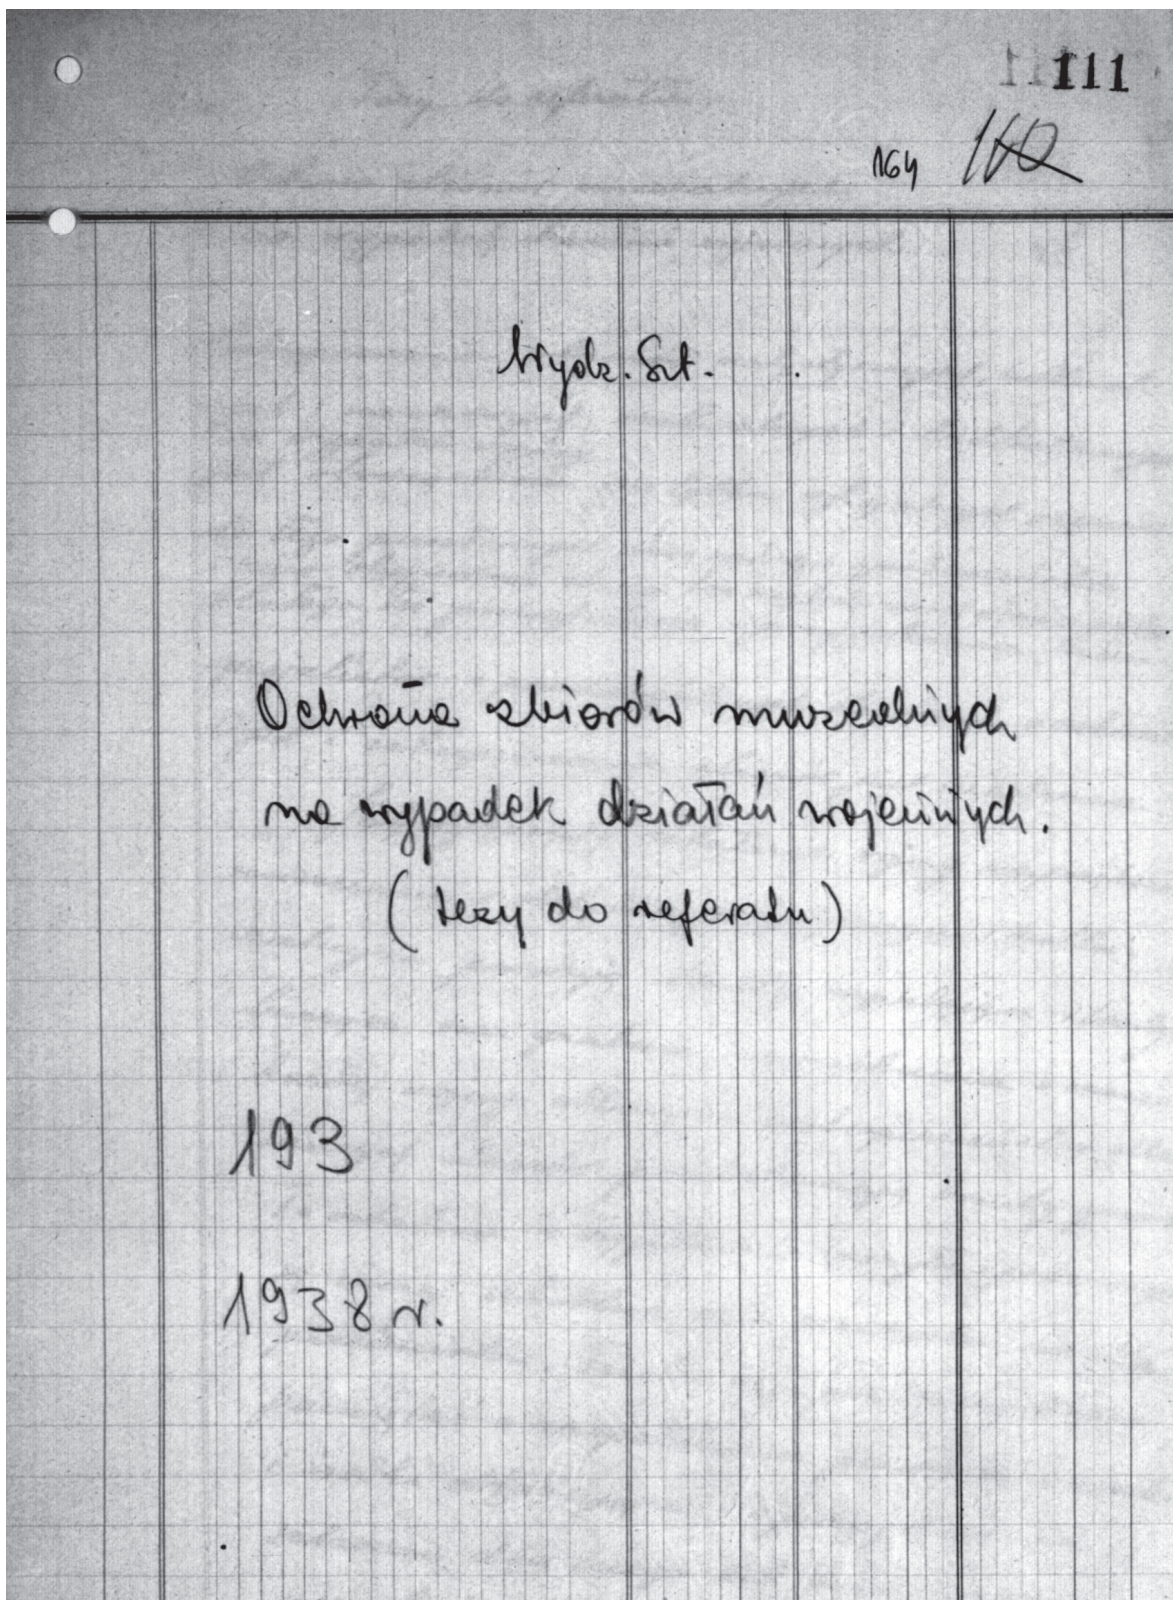 111
164 110
Wydz. Szt.
Ochrona zbiorów muzealnych
na wypadek działań wojennych.
(tezy do referatu)
193
1938 r.